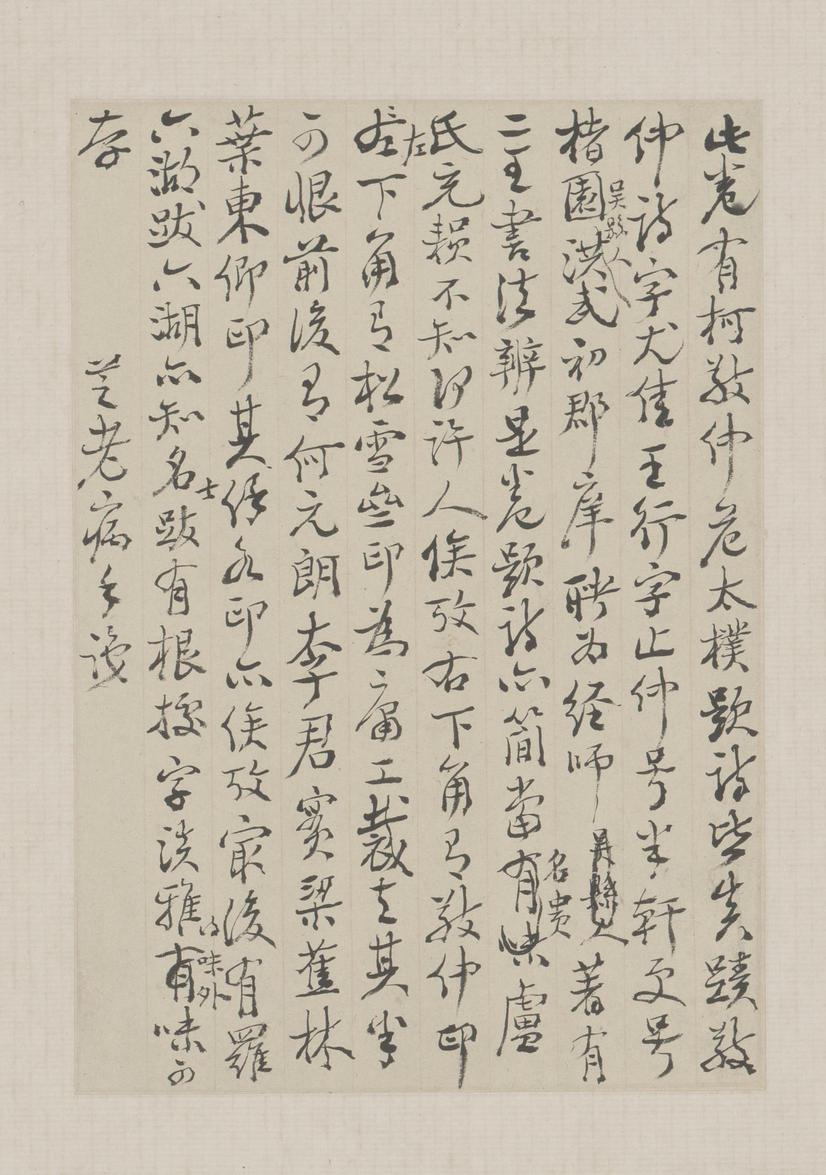 此卷有柯敬仲危太樸題詩皆真蹟敬
仲詩字尤佳王行字止仲号半軒更号
楮園吳縣人洪武初郡庠聘为経師吳縣人著有
二王書法辨是卷題詩亦簡當有味名贵盧
氏充頛不知何許人俟攷右下角有敬仲印
左下角有松雪齋印為庸工裁去其半
可恨前後有何元朗李君實梁蕉林
葉東卿印其係印亦俟攷最後有羅
六湖跋六湖亦知名士跋有根據字淡雅有味外味可
存
老病手